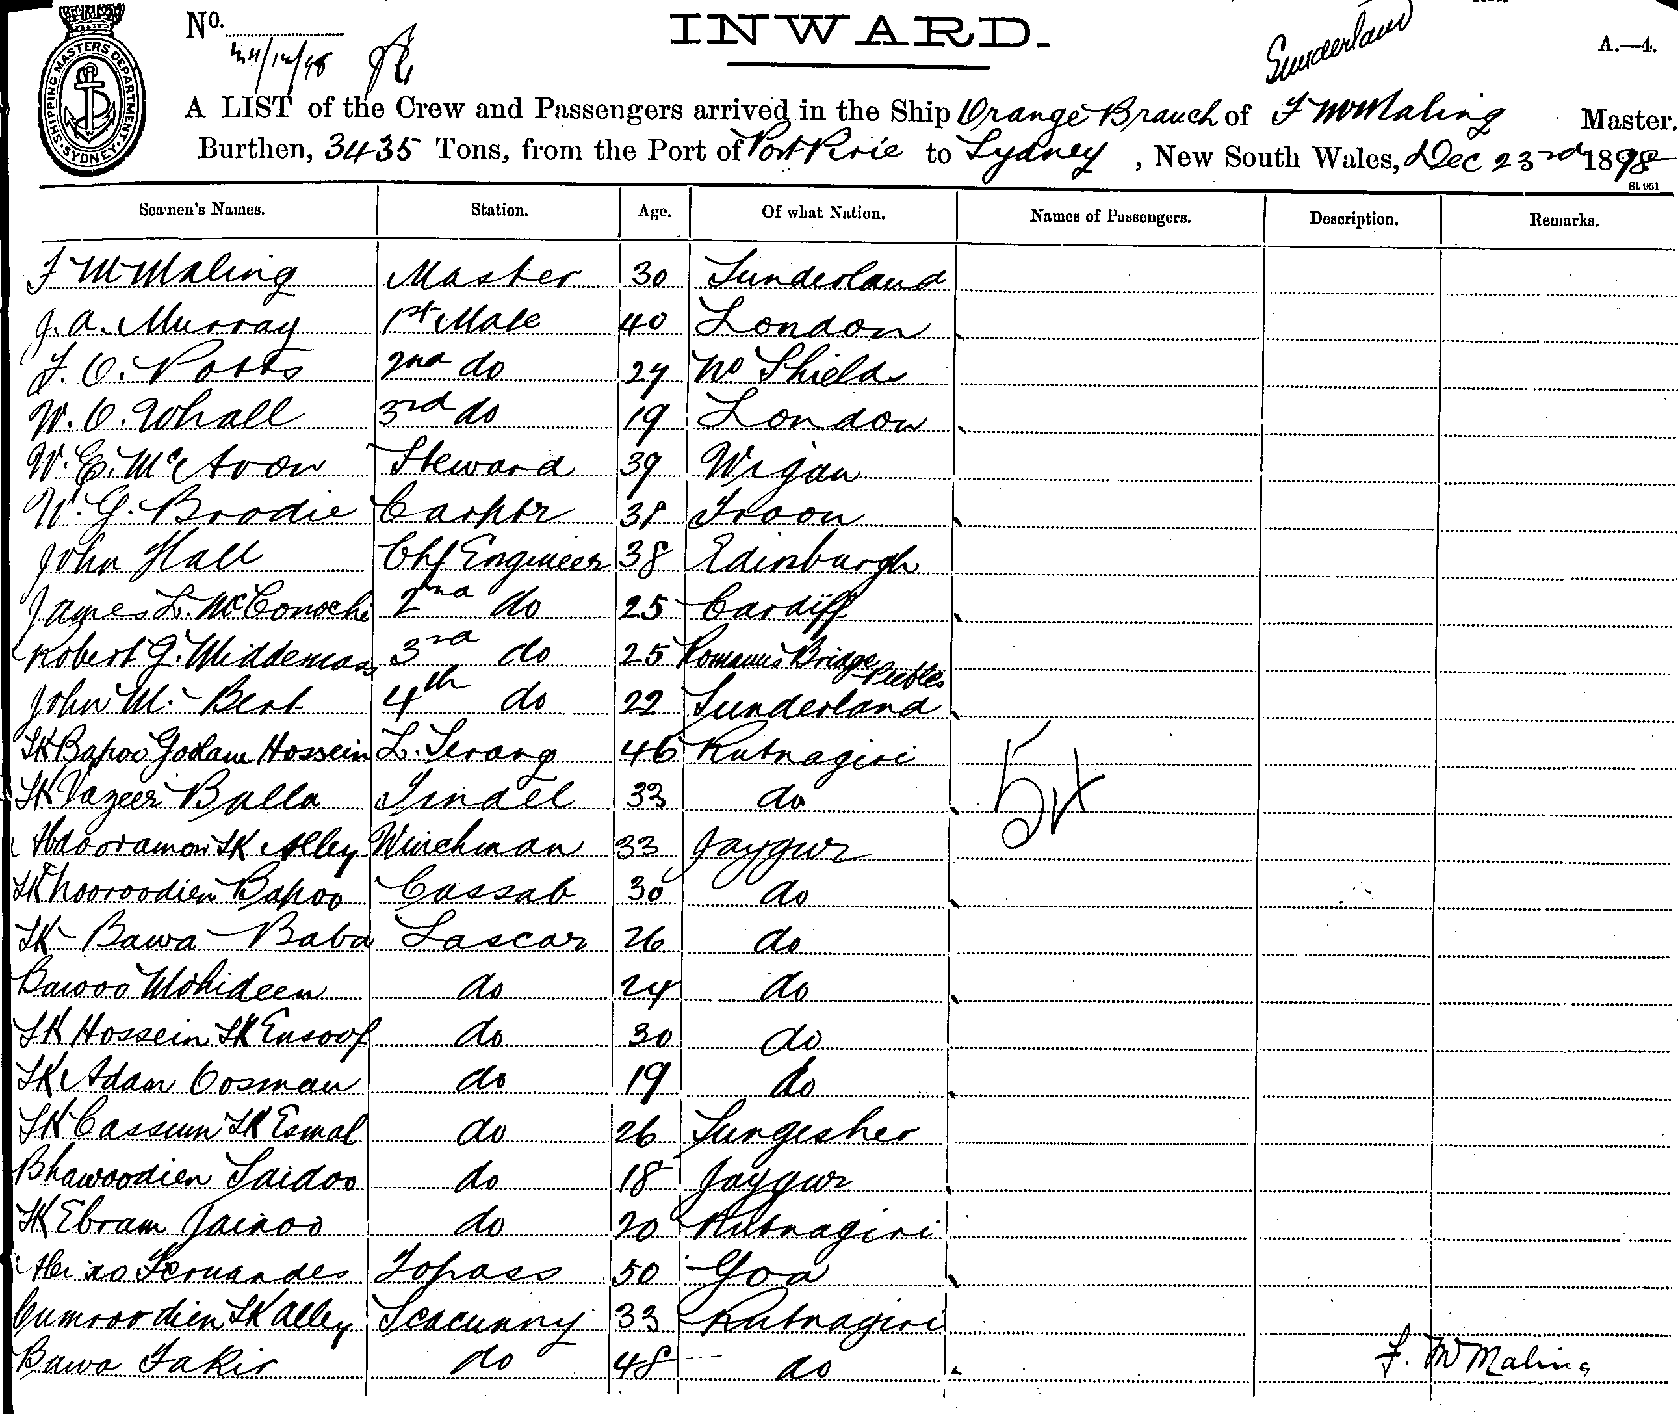 No.
24/12/98
INWARD.
Sunderland
A.—4.
SHIPPING MASTERS DEPARTMENT
SYDNEY
A LIST of the Crew and Passengers arrived in the Ship Orange Branch of F W Maling Master.
Burthen, 3435 Tons, from the Port of Port Pirie to Sydney, New South Wales, Dec 23rd 1898
Seamen's Names. Station. Age. Of what Nation. Names of Passengers. Description. Remarks.
F W Maling Master 30 Sunderland
J. A. Murray 1st Mate 40 London
J. O. Potts 2nd do 27 No Shields
W. O. Whall 3rd do 19 London
W. E. McAvon Steward 39 Wigan
W. G. Brodie Carptr 38 Troon
John Hall Chf Engineer 38 Edinburgh
James L. McConochi 2nd do 25 Cardiff
Robert G. Middemass 3rd do 25 Romanus Bridge Peebles
John M. Bert 4th do 22 Sunderland
SK Bapoo Goolam Hossein L. Serang 46 Rutnagiri
SK Vazeer Balla Tindel 33 do
Abdooramon SK Alley Winchman 33 Jaygur
SK Nooroodien Bapoo Cassab 30 do
SK Bawa Baba Lascar 26 do
Bawoo Mohideen do 24 do
SK Hossein SK Eusoof do 30 do
SK Adam Oosman do 19 do
SK Cassum SK Esmal do 26 Sungesher
Bhawoodien Saidoo do 18 Jaygur
SK Ebram Jainoo do 20 Rutnagiri
Fernandes Topass 50 Goa
Cumroodien SK Alley Seacunny 33 Rutnagiri
Bawa Fakir do 48 do
F. W Maling